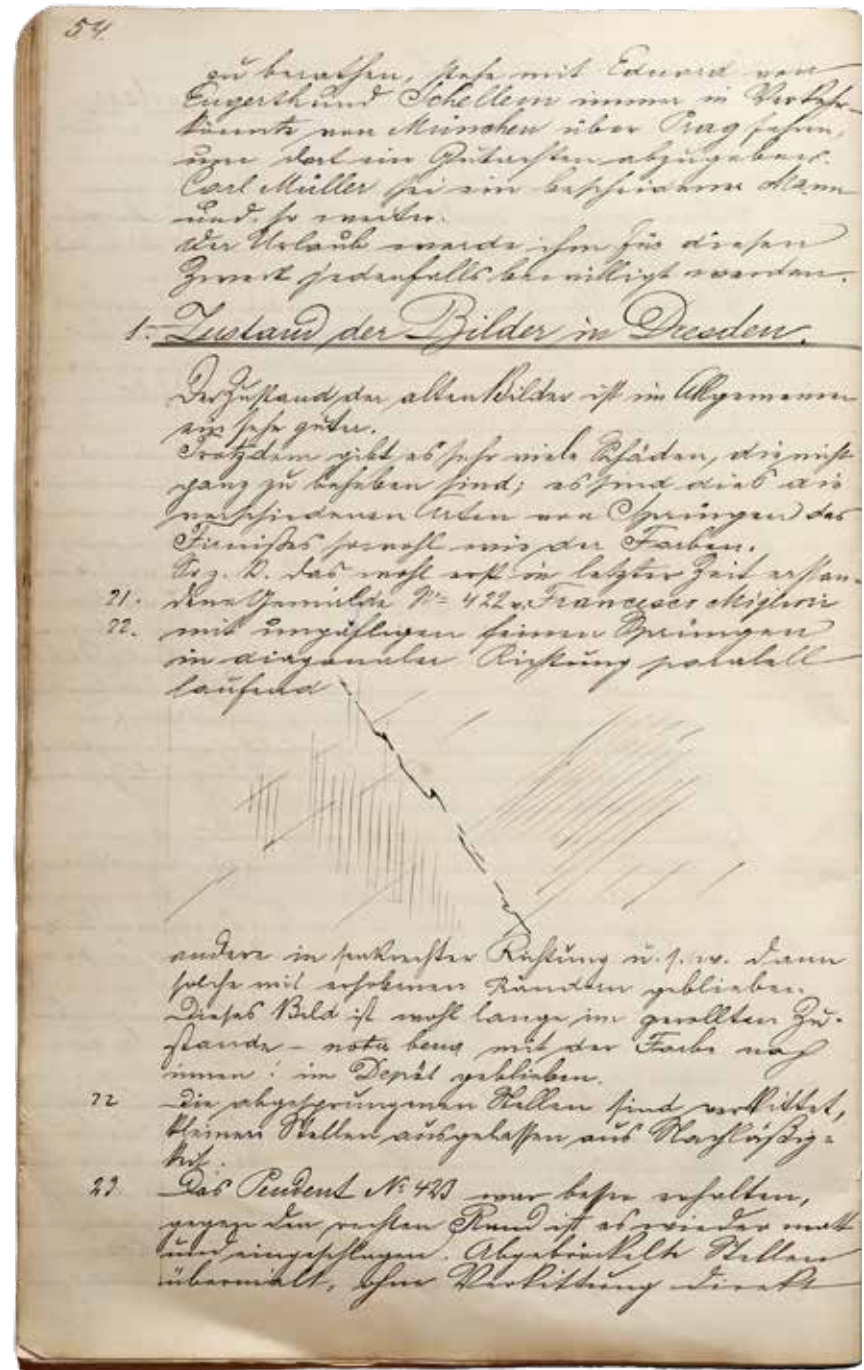 54.
zu berathen, stehe mit Eduard von
Engerth und Schellein immer in Verkehr
könnte von München über Prag fahren,
um dort ein Gutachten abzugeben.
Carl Müller sei ein bescheidener Mann
und so weiter.
Der Urlaub werde ihm für diesen
Zweck jedenfalls bewilligt werden.
1. Zustand der Bilder in Dresden.
Der Zustand der alten Bilder ist im Allgemeinen
ein sehr guter.
Trotzdem gibt es sehr viele Schäden, die nicht
ganz zu beheben sind; es sind dies die
verschiedenen Arten von Sprüngen des
Firnißes sowohl wie der Farben.
So z. B. das wohl erst in letzter Zeit erstan-
21. dene Gemälde No 422 v. Francesco Migliori
22. mit unzähligen feinen Sprüngen
in diagonaler Richtung paralell
laufend
andere in senkrechter Richtung u. s. w. dann
solche mit erhobenen Rändern geblieben.
Dieses Bild ist wohl lange im gerollten Zu-
stande – nota bene mit der Farbe nach
innen! im Depôt geblieben.
22 Die abgesprungenen Stellen sind verkittet,
kleinere Stellen ausgelassen aus Nachläßig-
keit.
23. Das Pendent No 423 war besser erhalten,
gegen den rechten Rand ist es wieder matt
und eingeschlagen. Abgebröckelte Stellen
übermalt, ohne Verkittung direkt